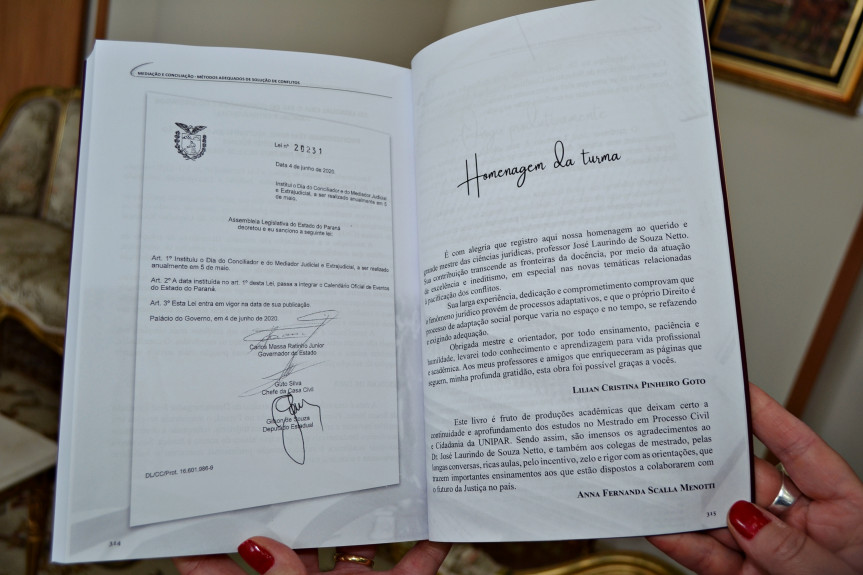 MEDIAÇÃO E CONCILIAÇÃO - MÉTODOS ADEQUADOS DE SOLUÇÃO DE CONFLITOS
Lei nº 20251
Data 4 de junho de 2020.
Institui o Dia do Conciliador e do Mediador Judicial
e Extrajudicial, a ser realizado anualmente em 5
de maio.
Assembleia Legislativa do Estado do Paraná
decretou e eu sanciono a seguinte lei:
Art. 1º Instituiu o Dia do Conciliador e do Mediador Judicial e Extrajudicial, a ser realizado
anualmente em 5 de maio.
Art. 2º A data instituída no art. 1º desta Lei, passa a integrar o Calendário Oficial de Eventos
do Estado do Paraná.
Art. 3º Esta Lei entra em vigor na data de sua publicação.
Palácio do Governo, em 4 de junho de 2020.
Carlos Massa Ratinho Junior
Governador do Estado
Guto Silva
Chefe da Casa Civil
Gilson de Souza
Deputado Estadual
DL/CC/Prot. 16.601.986-8
324
Homenagem da turma
É com alegria que registro aqui nossa homenagem ao querido e
grande mestre das ciências jurídicas, professor José Laurindo de Souza Netto.
Sua contribuição transcende as fronteiras da docência, por meio da atuação
de excelência e ineditismo, em especial nas novas temáticas relacionadas
à pacificação dos conflitos.
Sua larga experiência, dedicação e comprometimento comprovam que
o fenômeno jurídico provém de processos adaptativos, e que o próprio Direito é
processo de adaptação social porque varia no espaço e no tempo, se refazendo
e exigindo adequação.
Obrigada mestre e orientador, por todo ensinamento, paciência e
humildade, levarei todo conhecimento e aprendizagem para vida profissional
e acadêmica. Aos meus professores e amigos que enriqueceram as páginas que
seguem, minha profunda gratidão, esta obra foi possível graças a vocês.
LILIAN CRISTINA PINHEIRO GOTO
Este livro é fruto de produções acadêmicas que deixam certo a
continuidade e aprofundamento dos estudos no Mestrado em Processo Civil
e Cidadania da UNIPAR. Sendo assim, são imensos os agradecimentos ao
Dr. José Laurindo de Souza Netto, e também aos colegas de mestrado, pelas
longas conversas, ricas aulas, pelo incentivo, zelo e rigor com as orientações, que
trazem importantes ensinamentos aos que estão dispostos a colaborarem com
o futuro da Justiça no país.
ANNA FERNANDA SCALLA MENOTTI
325